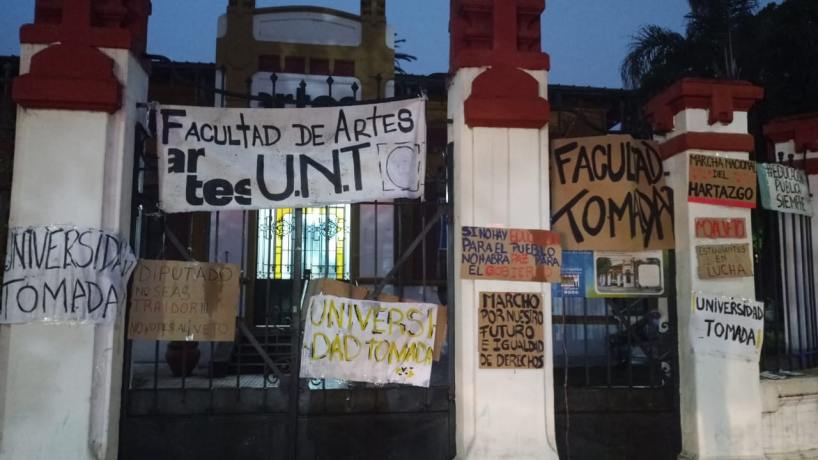 artes
FACULTAD DE ARTES
ar
tes U.N.T
UNIVERSIDAD
TOMADA
DIPUTADO
NO SEAS
TRAIDOR!!
UNIVERSI
DAD TOMADA
SI NO HAY EDUCACIÓN
PARA EL PUEBLO
NO HABRA PAZ PARA
EL GOBIERNO
MARCHO
POR NUESTRO
FUTURO
E IGUALDAD
DE DERECHOS
FACULTAD
TOMADA
MARCHA NACIONAL
DEL
HARTAZGO
ESTUDIANTES EN
LUCHA
UNIVERSIDAD
TOMADA
#EDUCACIÓN
PÚBLICA
SIEMPRE